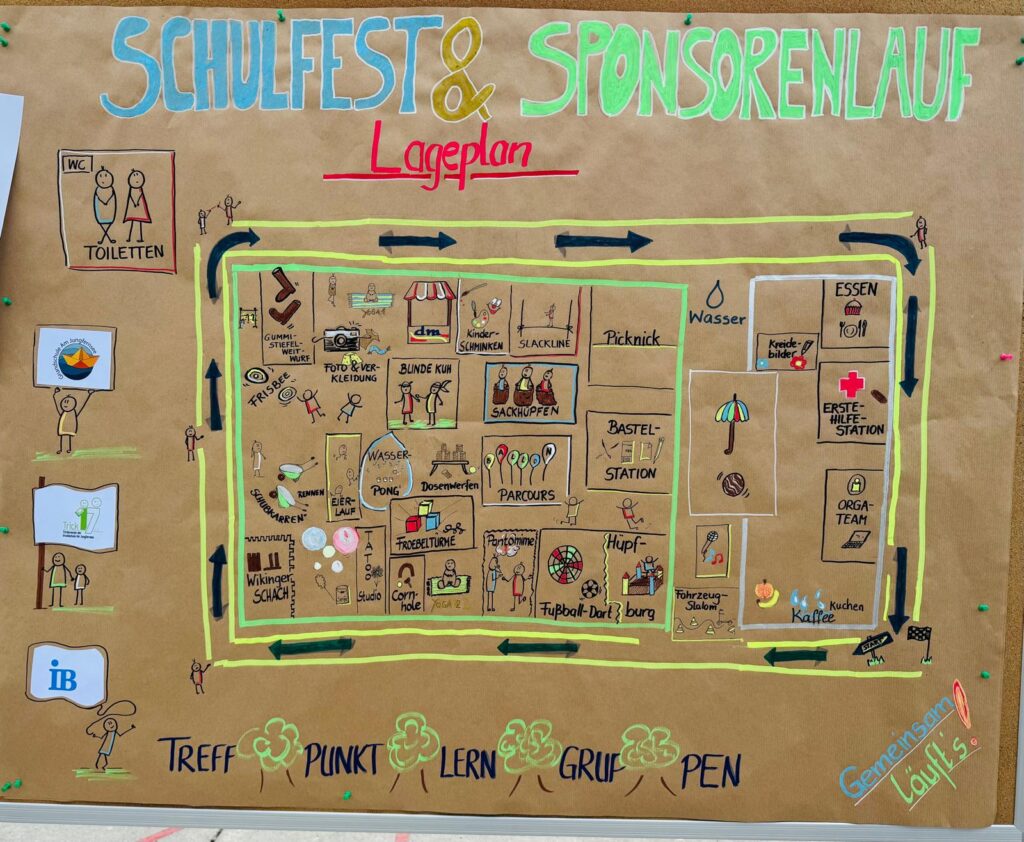 SCHULFEST & SPONSORENLAUF
Lageplan
WC
TOILETTEN
Grundschule Am Jungfernsee
Trick 17
iB
GUMMI-
STIEFEL-
WEIT-
WURF
YOGA 1
dm
Kinder-
SCHMINKEN
SLACKLINE
Picknick
Wasser
ESSEN
Kreide-
bilder
FOTO & VER-
KLEIDUNG
FRISBEE
BUNDE KUH
SACKHÜPFEN
BASTEL-
STATION
ERSTE-
HILFE-
STATION
SCHUBKARREN-
RENNEN
EIER-
LAUF
WASSER-
PONG
Dosenwerfen
BALLON
PARCOURS
ORGA-
TEAM
FROEBELTÜRME
Wikinger
SCHACH
TATOO
Studio
Corn-
hole
YOGA 2
Pantomime
Fußball-Dart
Hüpf-
burg
Fahrzeug-
Slalom
Kaffee
Kuchen
START
TREFF PUNKT LERN GRUP PEN
Gemeinsam
läuft's.